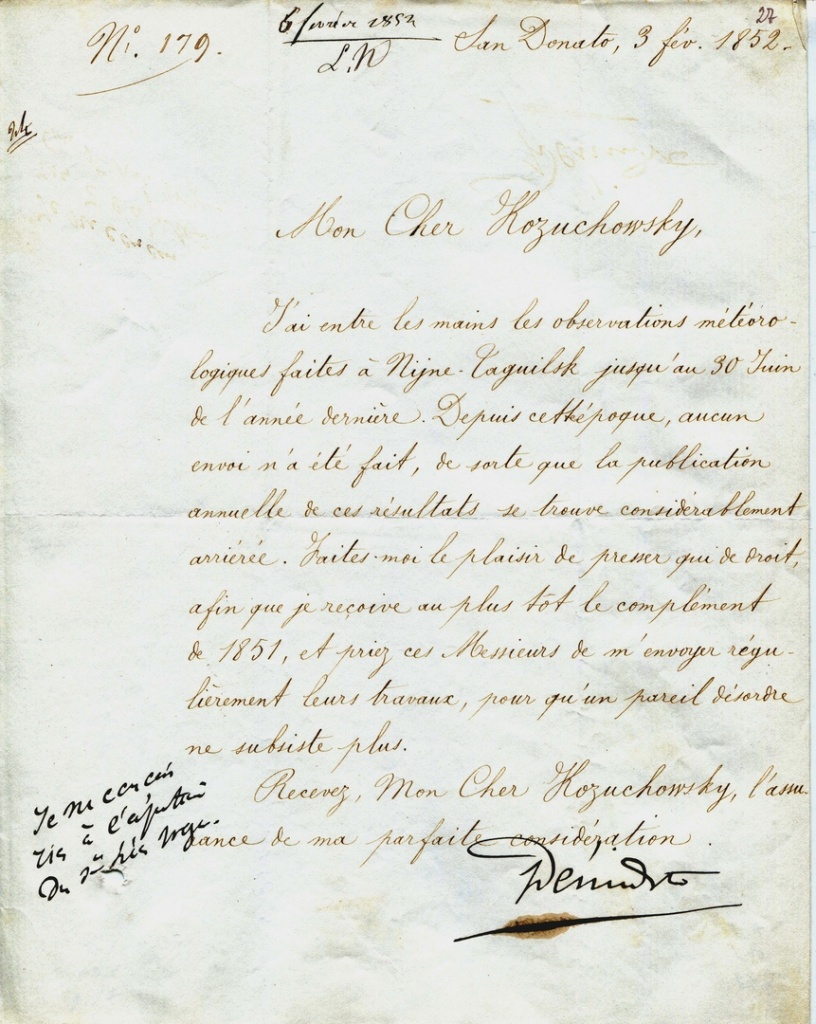 27
6 février 1852
L.N
Nº. 179.
San Donato, 3 fév. 1852.
Mon Cher Kozuchowsky,
J'ai entre les mains les observations météoro-
logiques faites à Nijne-Taguilsk jusqu'au 30 Juin
de l'année dernière. Depuis cette époque, aucun
envoi n'a été fait, de sorte que la publication
annuelle de ces résultats se trouve considérablement
arriérée. Faites-moi le plaisir de presser qui de droit,
afin que je reçoive au plus tôt le complément
de 1851, et priez ces Messieurs de m'envoyer régu-
lièrement leurs travaux, pour qu'un pareil désordre
ne subsiste plus.
Recevez, Mon Cher Kozuchowsky, l'assu-
rance de ma parfaite considération.
Demidoff
Je ne
à